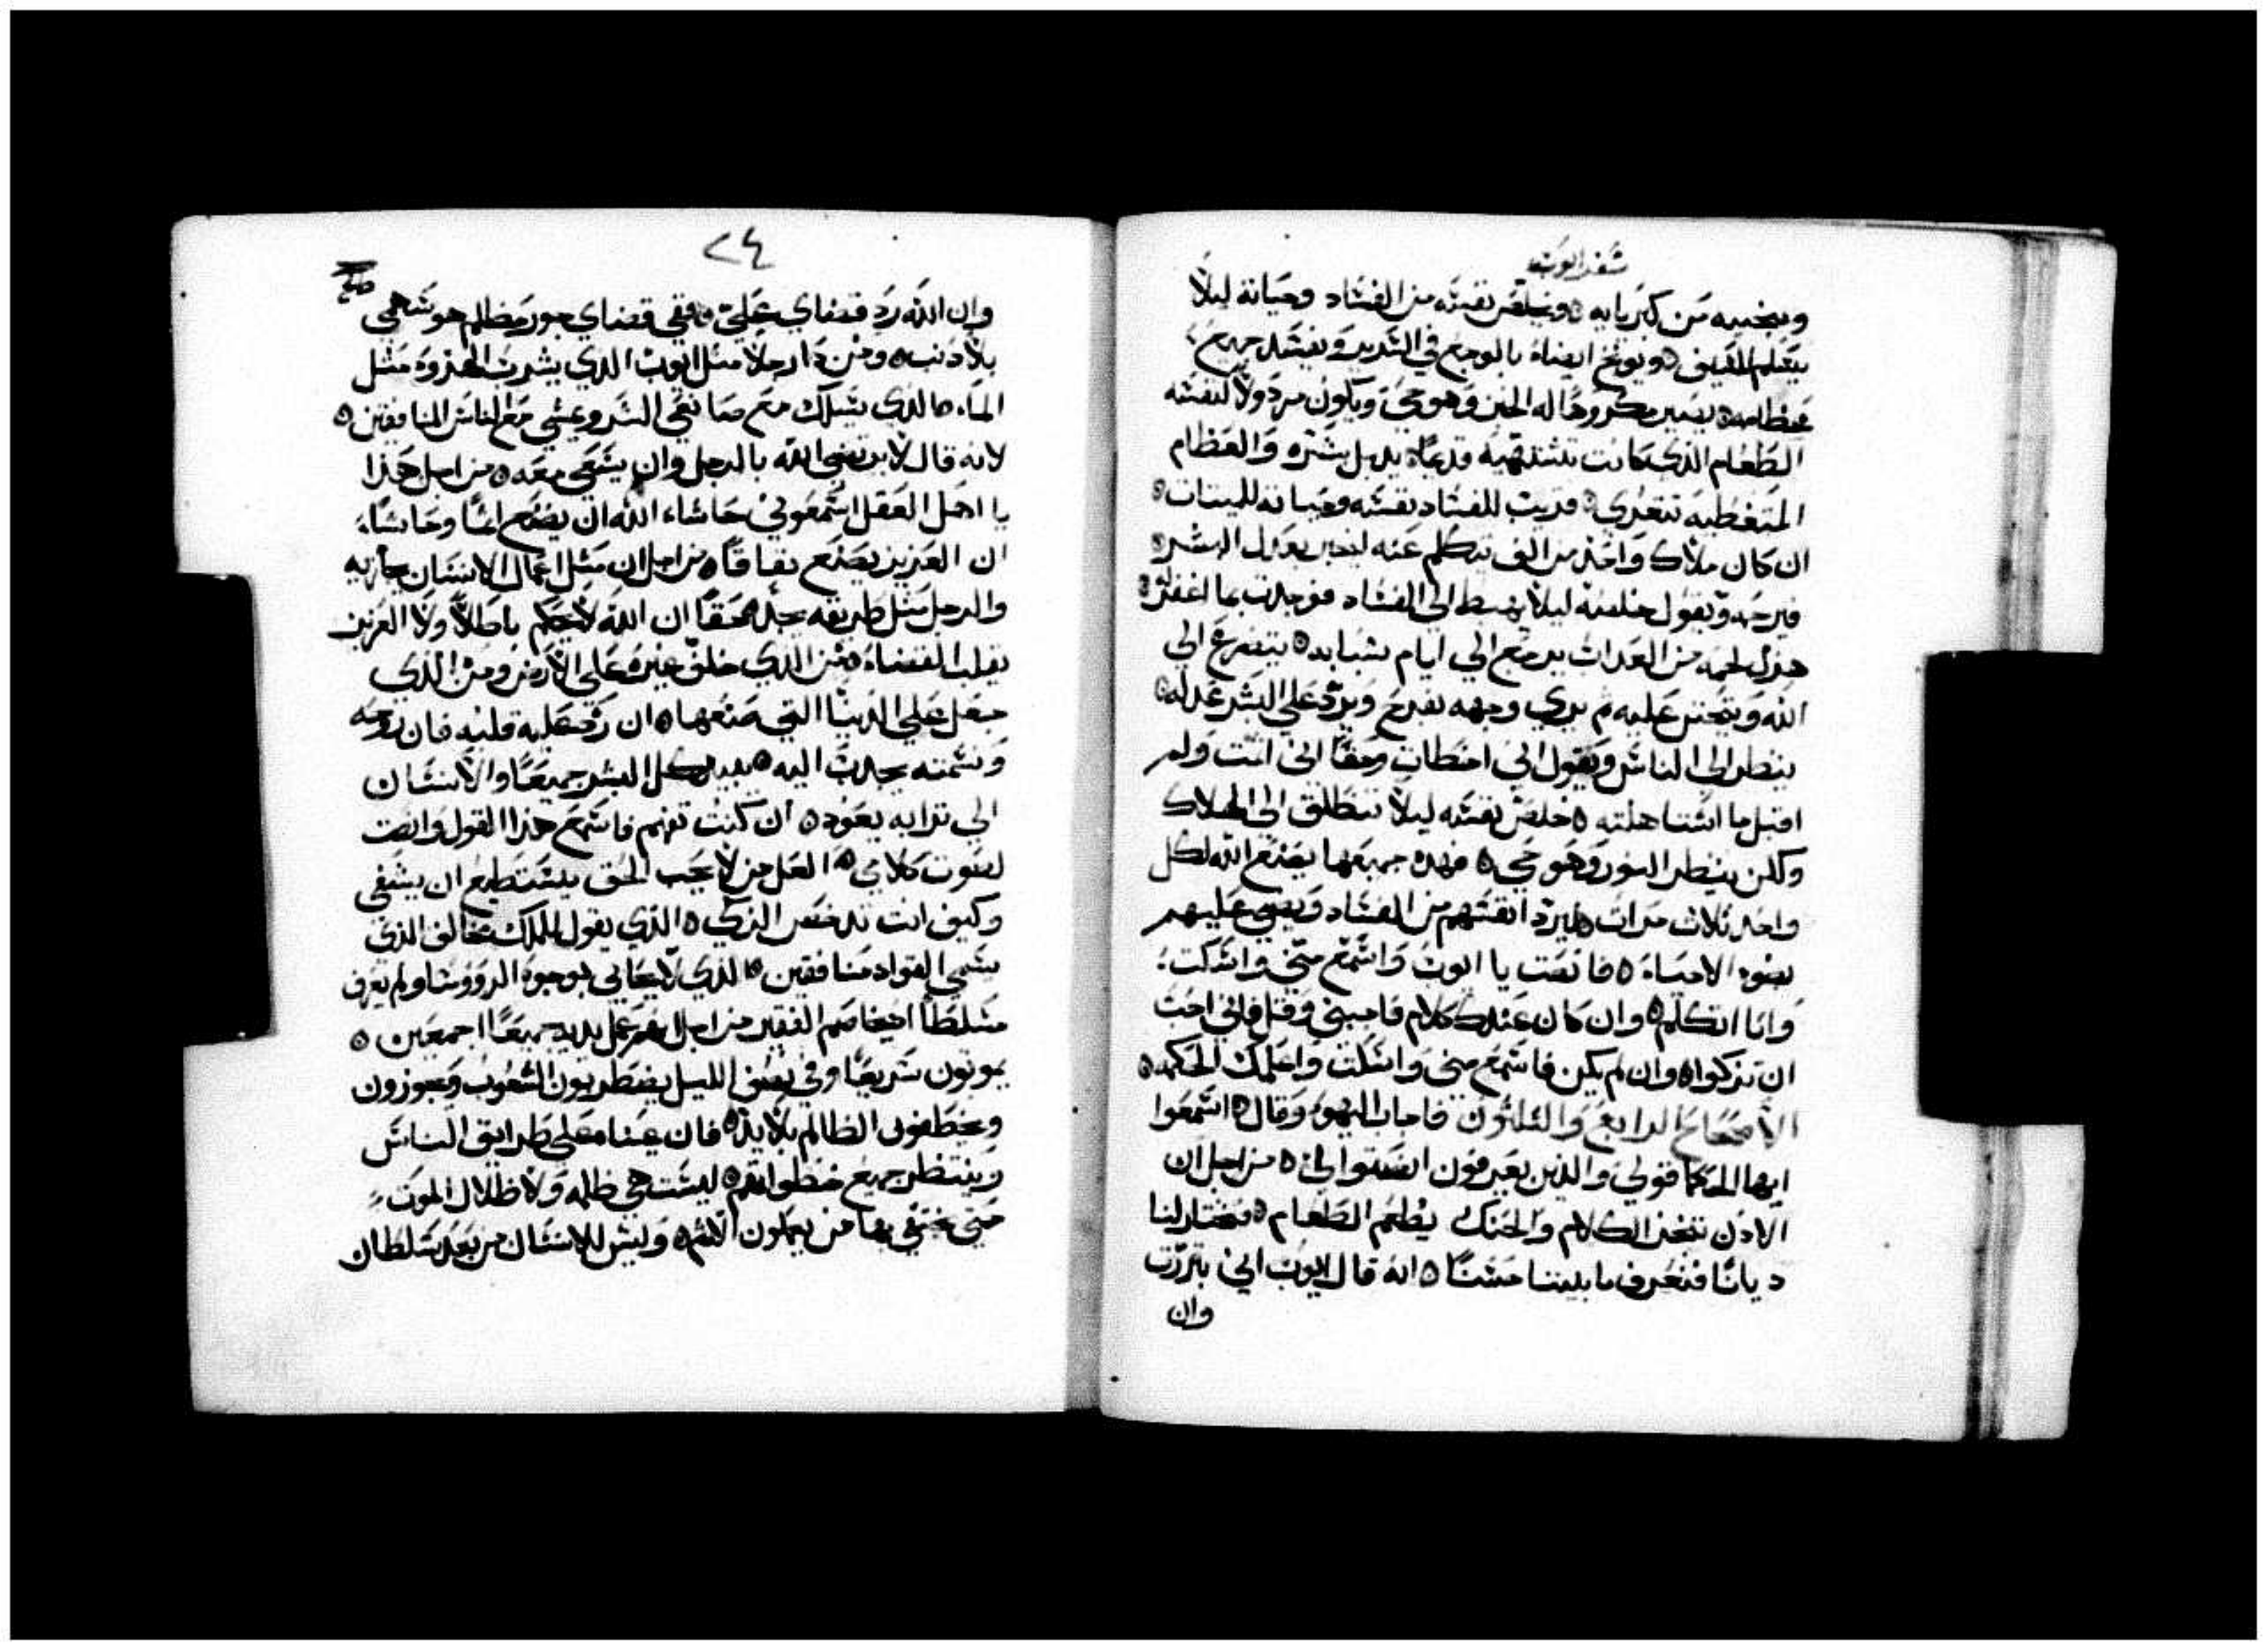 سفر ايوب
وينجيه من كبريايه ٥ ويخلص نفسه من الفساد وحياته ليلا
بيتعلم السيف ٥ ويوبخ ايضاه بالوجع في السرير ويفسد جميع
عظامه ٥ يصير مكروها له الخبز وهو حي ويكون مردولا لنفسه
الطعام الذي كانت تشتهيه قديما ٥ يدبل بشره والعظام
المتغطيه تتعري ٥ قربت للفساد نفسه وحياته للميتات ٥
ان كان ملاك واحد من الف تيكلم عنه ليخبر بعدل البشر ٥
فيرحمه ويقول خلصه ليلا يهبط الى الفساد فوجدت بما اغفر له ٥
هزل لحمه من العداب يرجع الي ايام شبابه ٥ يتضرع الي
الله ويتحنن عليه ثم يري وجهه بفرح ويرد علي البشر عدله ٥
ينظر الي الناس ويقول اني اخطات وحقا اني اثمت ولم
اقبل ما استاهلته ٥ خلص نفسه ليلا تنطلق الي الهلاك
ولكن ينظر النور وهو حي ٥ فهده جميعها يصنع الله لكل
واحد ثلاث مرات ٥ ليرد انفسهم من الفساد ويضي عليهم
بضوء الاحياء ٥ فانصت يا ايوب واسمع مني واسكت
وانا اتكلم ٥ وان كان عندك كلام فاجبني وقل فاني احب
ان تزكوا ٥ وان لم يكن فاسمع مني واسكت واعلمك الحكمه ٥
الاصحاح الرابع والثلثون فاجاب اليهو وقال ٥ اسمعوا
ايها الحكما قولي والذين يعرفون انصتوا الي ٥ من اجل ان
الادن تمتحن الكلام والحنك يطعم الطعام ٥ فنختار لنا
ديانا فنعرف ما بيننا حسنا ٥ انه قال ايوب اني بتررت
وان
٢٤
وان الله رد قضاي علي ٥ ففي قضاي جور مظالم هو سهمي
بلا دنب ٥ ومن دا رجلا مثل ايوب الدي يشرب الهزوه مثل
الماء ٥ الدي يسلك مع صانعي الشر ويمشي مع الناس المنافقين ٥
لانه قال لا يرتضي الله بالرجل وان يسعي معه ٥ من اجل هذا
يا اهل العقل اسمعوني حاشاء الله ان يصنع اثما وحاشاء
ان العزيز يصنع نفاقا ٥ من اجل ان مثل اعمال الانسان يجازيه
والرجل مثل طريقه يجده ٥ حقا ان الله لا يحكم باطلا ولا العزيز
يقلب القضاء ٥ من الدي خلق غيره علي الارض ومن الذي
جعل علي الدنيا التي صنعها ٥ ان رد عليه قلبه فان روحه
ونسمته يجدب اليه ٥ يبيد كل البشر جميعا والانسان
الي ترابه يعود ٥ ان كنت تفهم فاسمع هذا القول وانصت
لصوت كلامي ٥ العل من لا يحب الحق يستطيع ان يشفي
وكيف انت تدحض الزكي ٥ الذي يقول للملك مخالف الذي
يسمي القواد منافقين ٥ الذي لا يحابي بوجوه الرووسا ولم يعرف
مسلطا اد يخاصم الفقير من اجل انهم عمل يديه جميعا اجمعين ٥
يموتون سريعا وفي نصف الليل يضطربون الشعوب ويجوزون
ويخطفون الظالم بلا يد ٥ فان عيناه علي طرايق الناس
وينتظر جميع خطواتهم ٥ ليست هي ظلمه ولا ظلال الموت
حتي يختفي بها من يعملون الاثم ٥ وليس للانسان من بعد سلطان